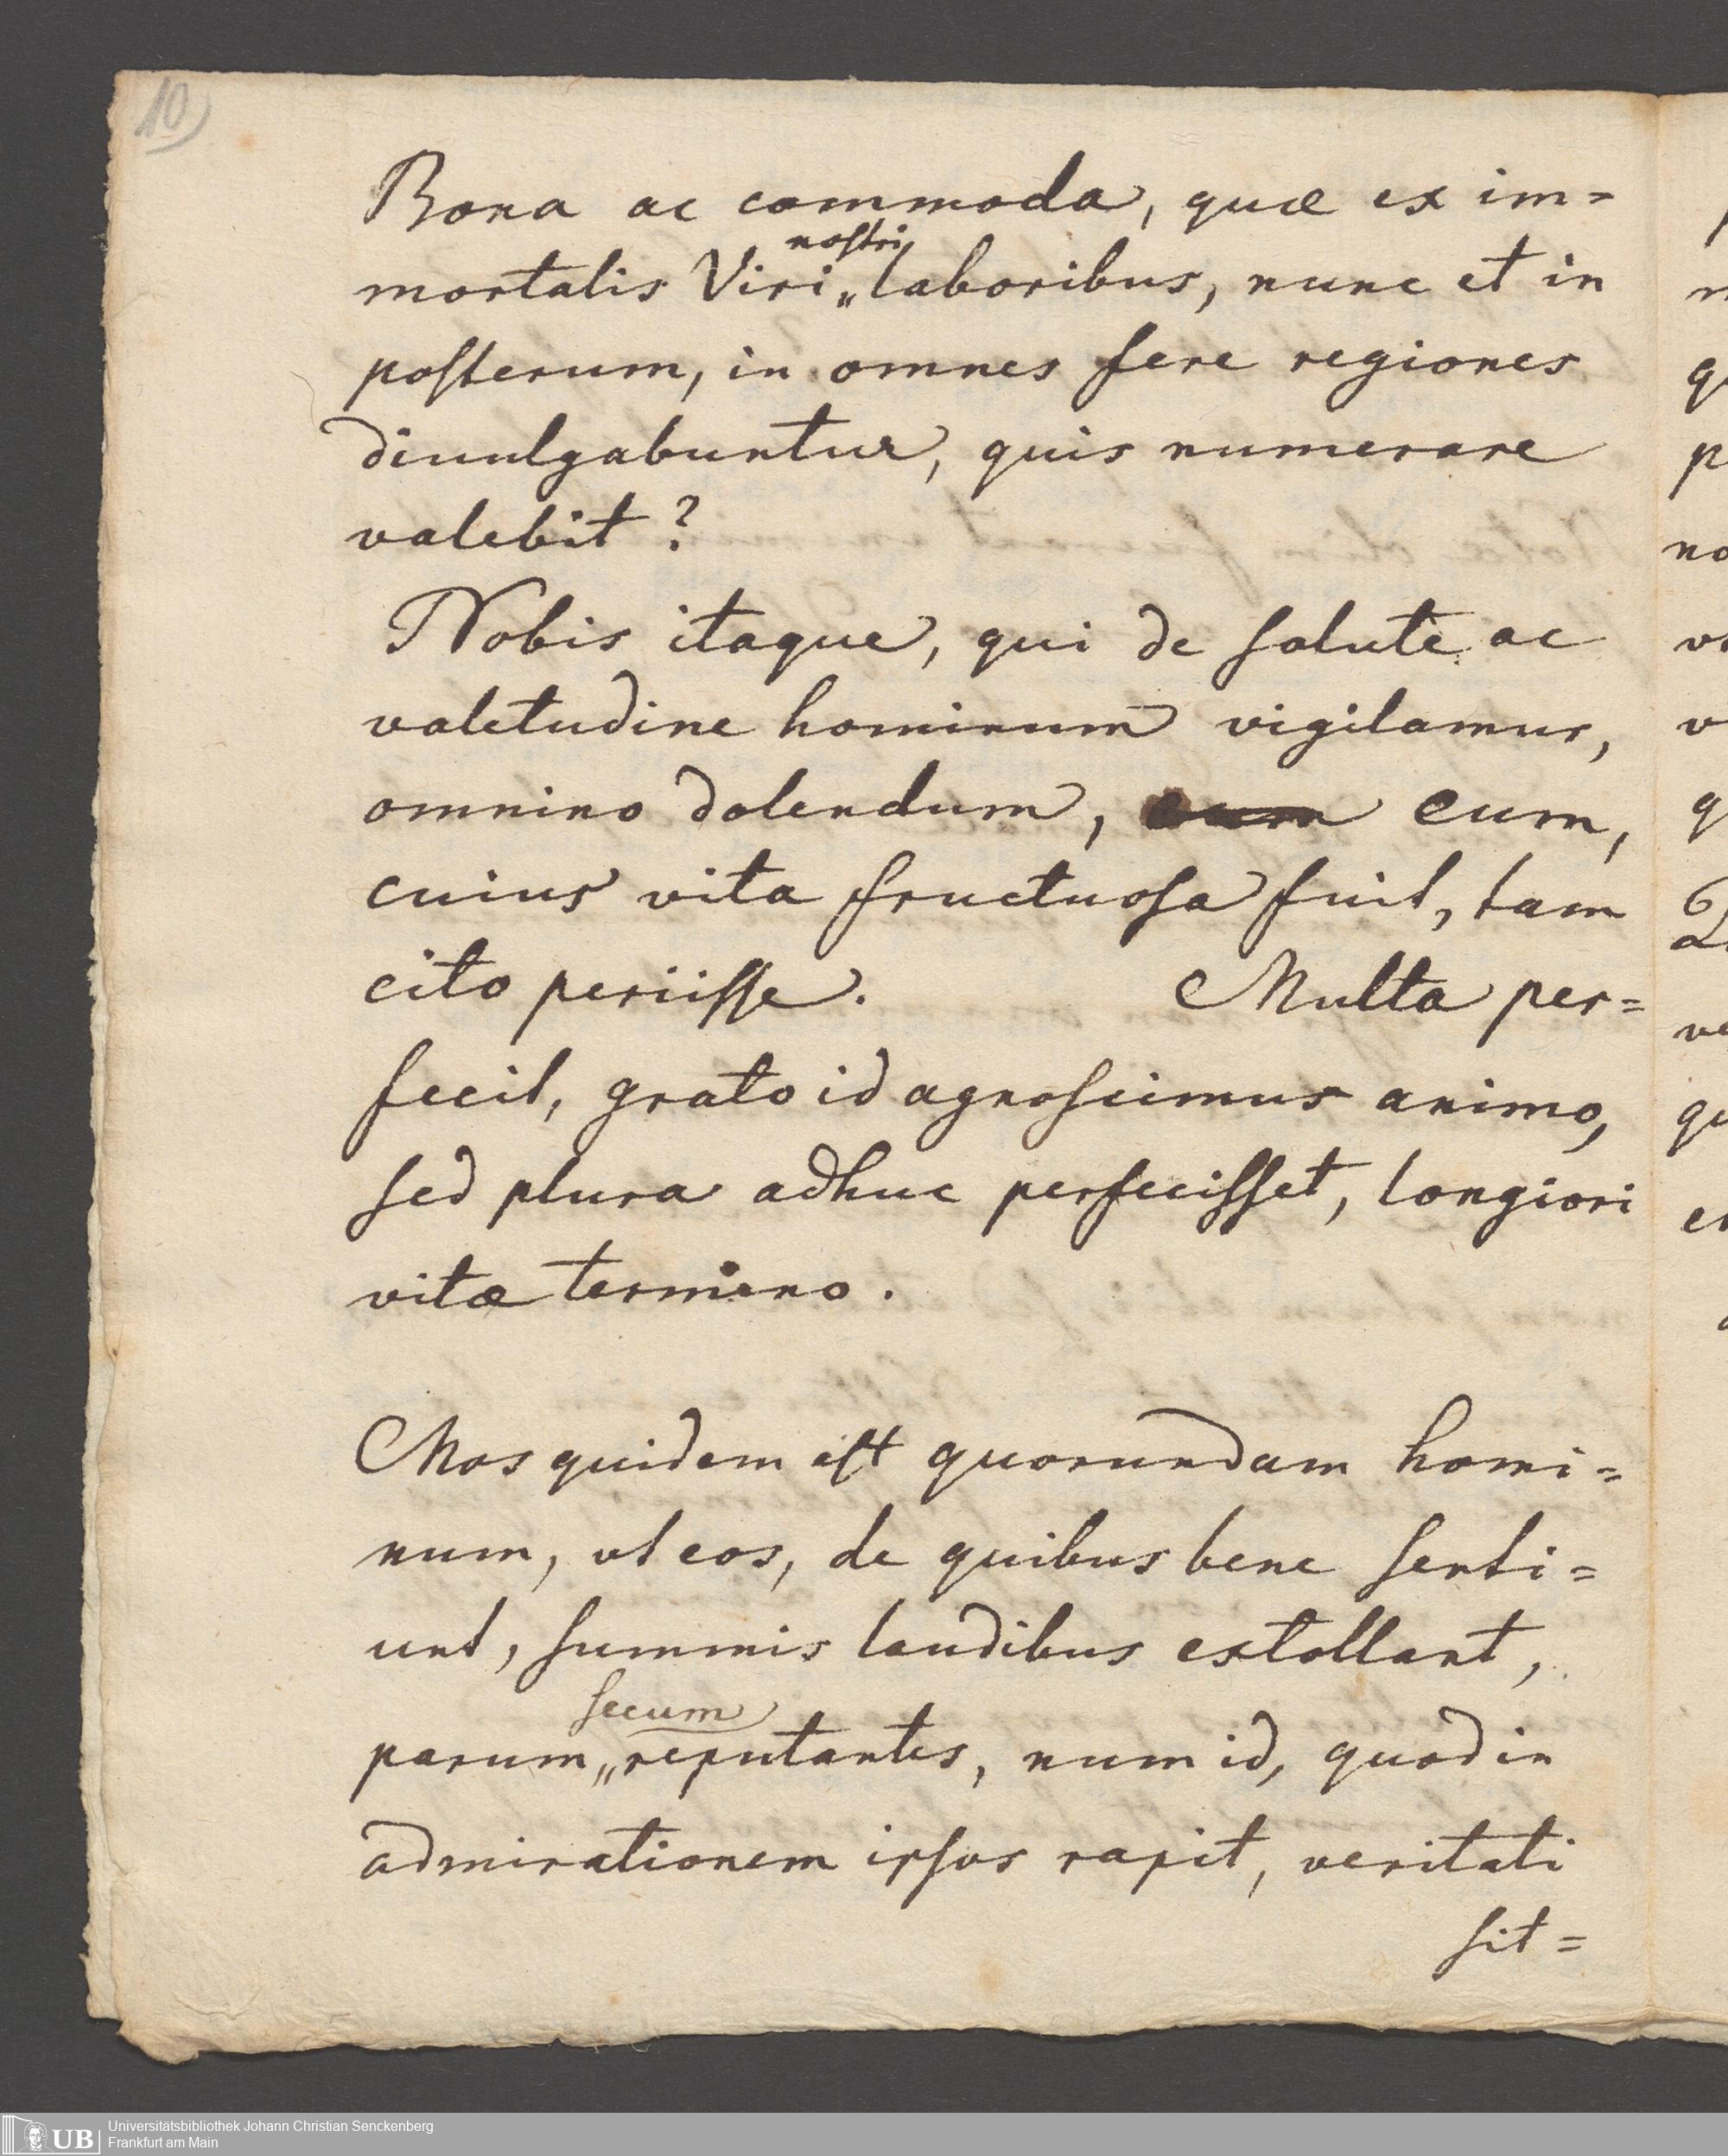 10)
Bona ac commoda, quæ ex im=
nostri
mortalis Viri„ laboribus, nunc et in
poſterum, in omnes fere regiones
diuulgabuntur, quis numerare
valebit?
Nobis itaque, qui de ſalute ac
valetudine hominum vigilamus,
omnino dolendum, eum eum,
cuius vita fructuoſa fuit, tam
cito periiſſe. Multa per=
fecit, grato id agnoſcimus animo,
ſed plura adhuc perfeciſſet, longiori
vitæ termino.
Mos quidem eſt quorundam homi=
num, vt eos, de quibus bene ſenti=
unt, ſummis laudibus extollant,
ſecum
parum„ reputantes, num id, quod in
admirationem ipſos rapit, veritati
ſit=
UB
Universitätsbibliothek Johann Christian Senckenberg
Frankfurt am Main